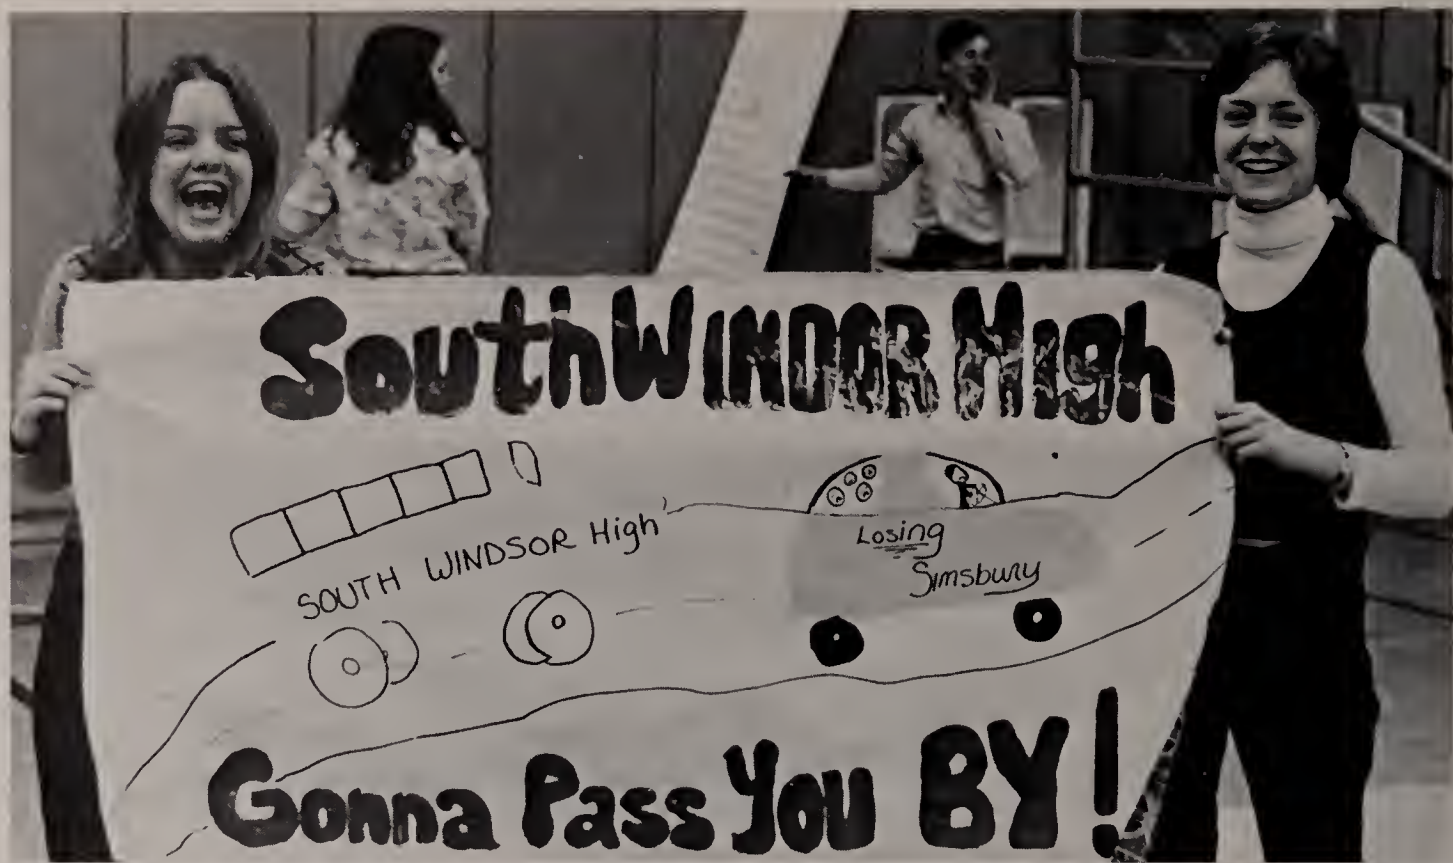 South WINDOR High
SOUTH WINDSOR High
Losing
Simsbury
Gonna Pass You BY!